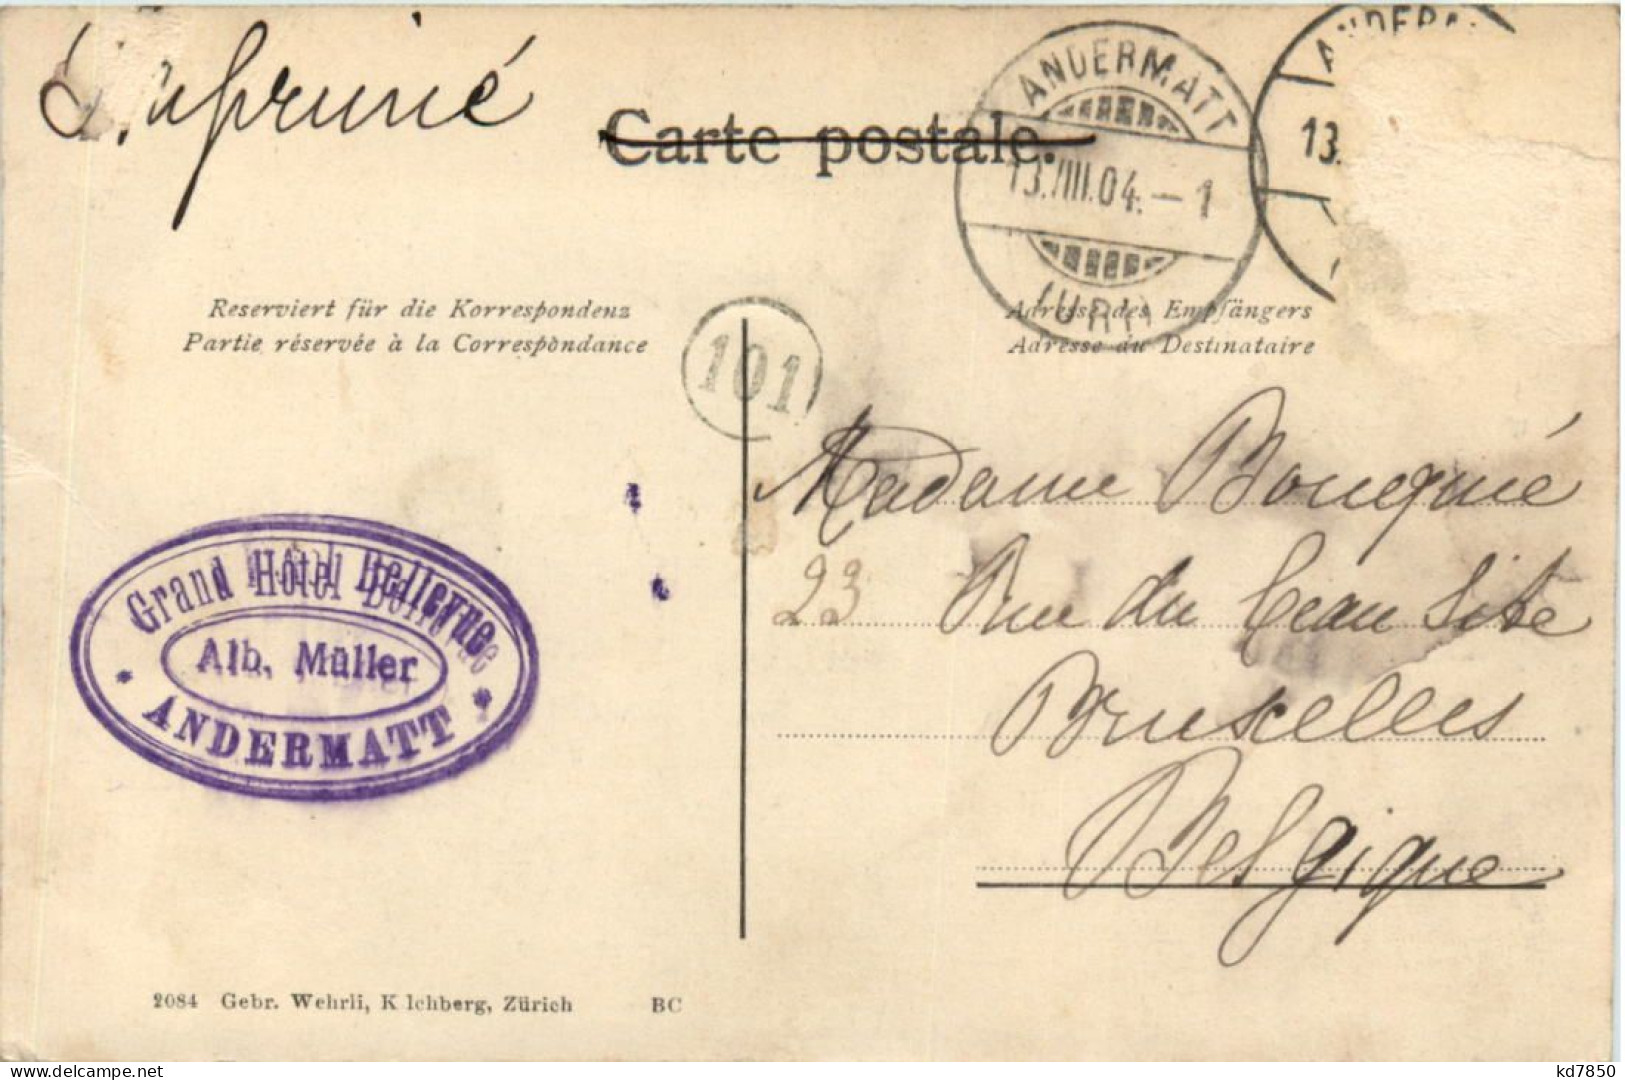 Imprimé
Carte postale.
ANDERMATT
13.VIII.04.–1
(URI)
ANDERM
13.
Reserviert für die Korrespondenz
Partie réservée à la Correspondance
Adresse des Empfängers
Adresse du Destinataire
101
Madame Bouquié
23 Rue du beau Site
Bruxelles
Belgique
Grand Hôtel Bellevue
Alb. Müller
* ANDERMATT *
2084 Gebr. Wehrli, Kilchberg, Zürich BC
delcampe.net
kd7850